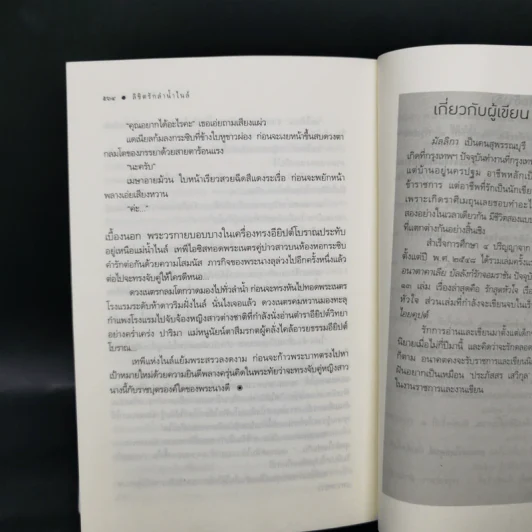 ๕๖๔ ● ลิขิตรักลำน้ำไนล์
"คุณอยากได้อะไรคะ" เธอเอ่ยถามเสียงแผ่ว
แดเนียลก้มลงกระซิบที่ข้างใบหูขาวผ่อง ก่อนจะเงยหน้าขึ้นสบดวงตา
กลมโตของภรรยาด้วยสายตาร้อนแรง
"นะครับ"
เมษาอายม้วน ใบหน้าเรียวสวยฉีดสีแดงระเรื่อ ก่อนจะพยักหน้า
พลางเอ่ยเสียงหวาน
"ค่ะ..."
เบื้องนอก พระวรกายบอบบางในเครื่องทรงอียิปต์โบราณประทับ
อยู่เหนือแม่น้ำไนล์ เทพีไอซิสทอดพระเนตรคู่บ่าวสาวบนห้องหอกระซิบ
คำรักต่อกันด้วยความโสมนัส ภารกิจของพระนางลุล่วงไปอีกครั้งหนึ่งแล้ว
ต่อไปจะทรงจับคู่ให้ใครดีหนอ...
ดวงเนตรกลมโตกวาดมองไปทั่วลำน้ำ ก่อนจะทรงหันไปทอดพระเนตร
โรงแรมระดับห้าดาวริมฝั่งไนล์ นั่นไงเจอแล้ว ดวงเนตรคมหวานมองทะลุ
กำแพงโรงแรมไปจับจ้องหญิงสาวต่างชาติที่กำลังนั่งอ่านตำราอียิปต์วิทยา
อย่างคร่ำเคร่ง ปาริมา แม่หนูนัยน์ตาสีมรกตผู้คลั่งไคล้อารยธรรมอียิปต์
โบราณ...
เทพีแห่งไนล์แย้มพระสรวลงดงาม ก่อนจะก้าวพระบาทตรงไปหา
เป้าหมายใหม่ด้วยความยินดีพลางครุ่นคิดในพระทัยว่าจะทรงจับคู่หญิงสาว
นางนี้กับราชบุตรองค์ใดของพระนางดี ◉
เกี่ยวกับผู้เขียน
มัลลิกา เป็นคนสุพรรณบุรี
เกิดที่กรุงเทพฯ ปัจจุบันทำงานที่กรุง
แต่บ้านอยู่นครปฐม อาชีพหลักเป็น
ข้าราชการ แต่อาชีพที่รักเป็นนักเขียน
เพราะเกิดราศีเมถุนเลยชอบทำอะไร
สองอย่างในเวลาเดียวกัน มีชีวิตสองแบบ
ที่แตกต่างกันอย่างสิ้นเชิง
สำเร็จการศึกษา ๔ ปริญญาจาก
ตั้งแต่ปี พ.ศ. ๒๕๔๘ ได้รวมเล่มครั้งแรก
๑๑ เล่ม เรื่องล่าสุดคือ
หัวใจ ส่วนเล่มที่กำลังจะเขียนจบในเร็ว
ไดยคูปต์
รักการอ่านและเขียนมาตั้งแต่เด็ก
นิยายเมื่อไม่กี่ปีมานี้ และคิดว่าจะรักตลอด
ก็ตาม อนาคตคงจะรับราชการและเขียน
ฝันอยากเป็นเหมือน 'ประภัสสร เสวิกุล'
ในงานราชการและงานเขียน